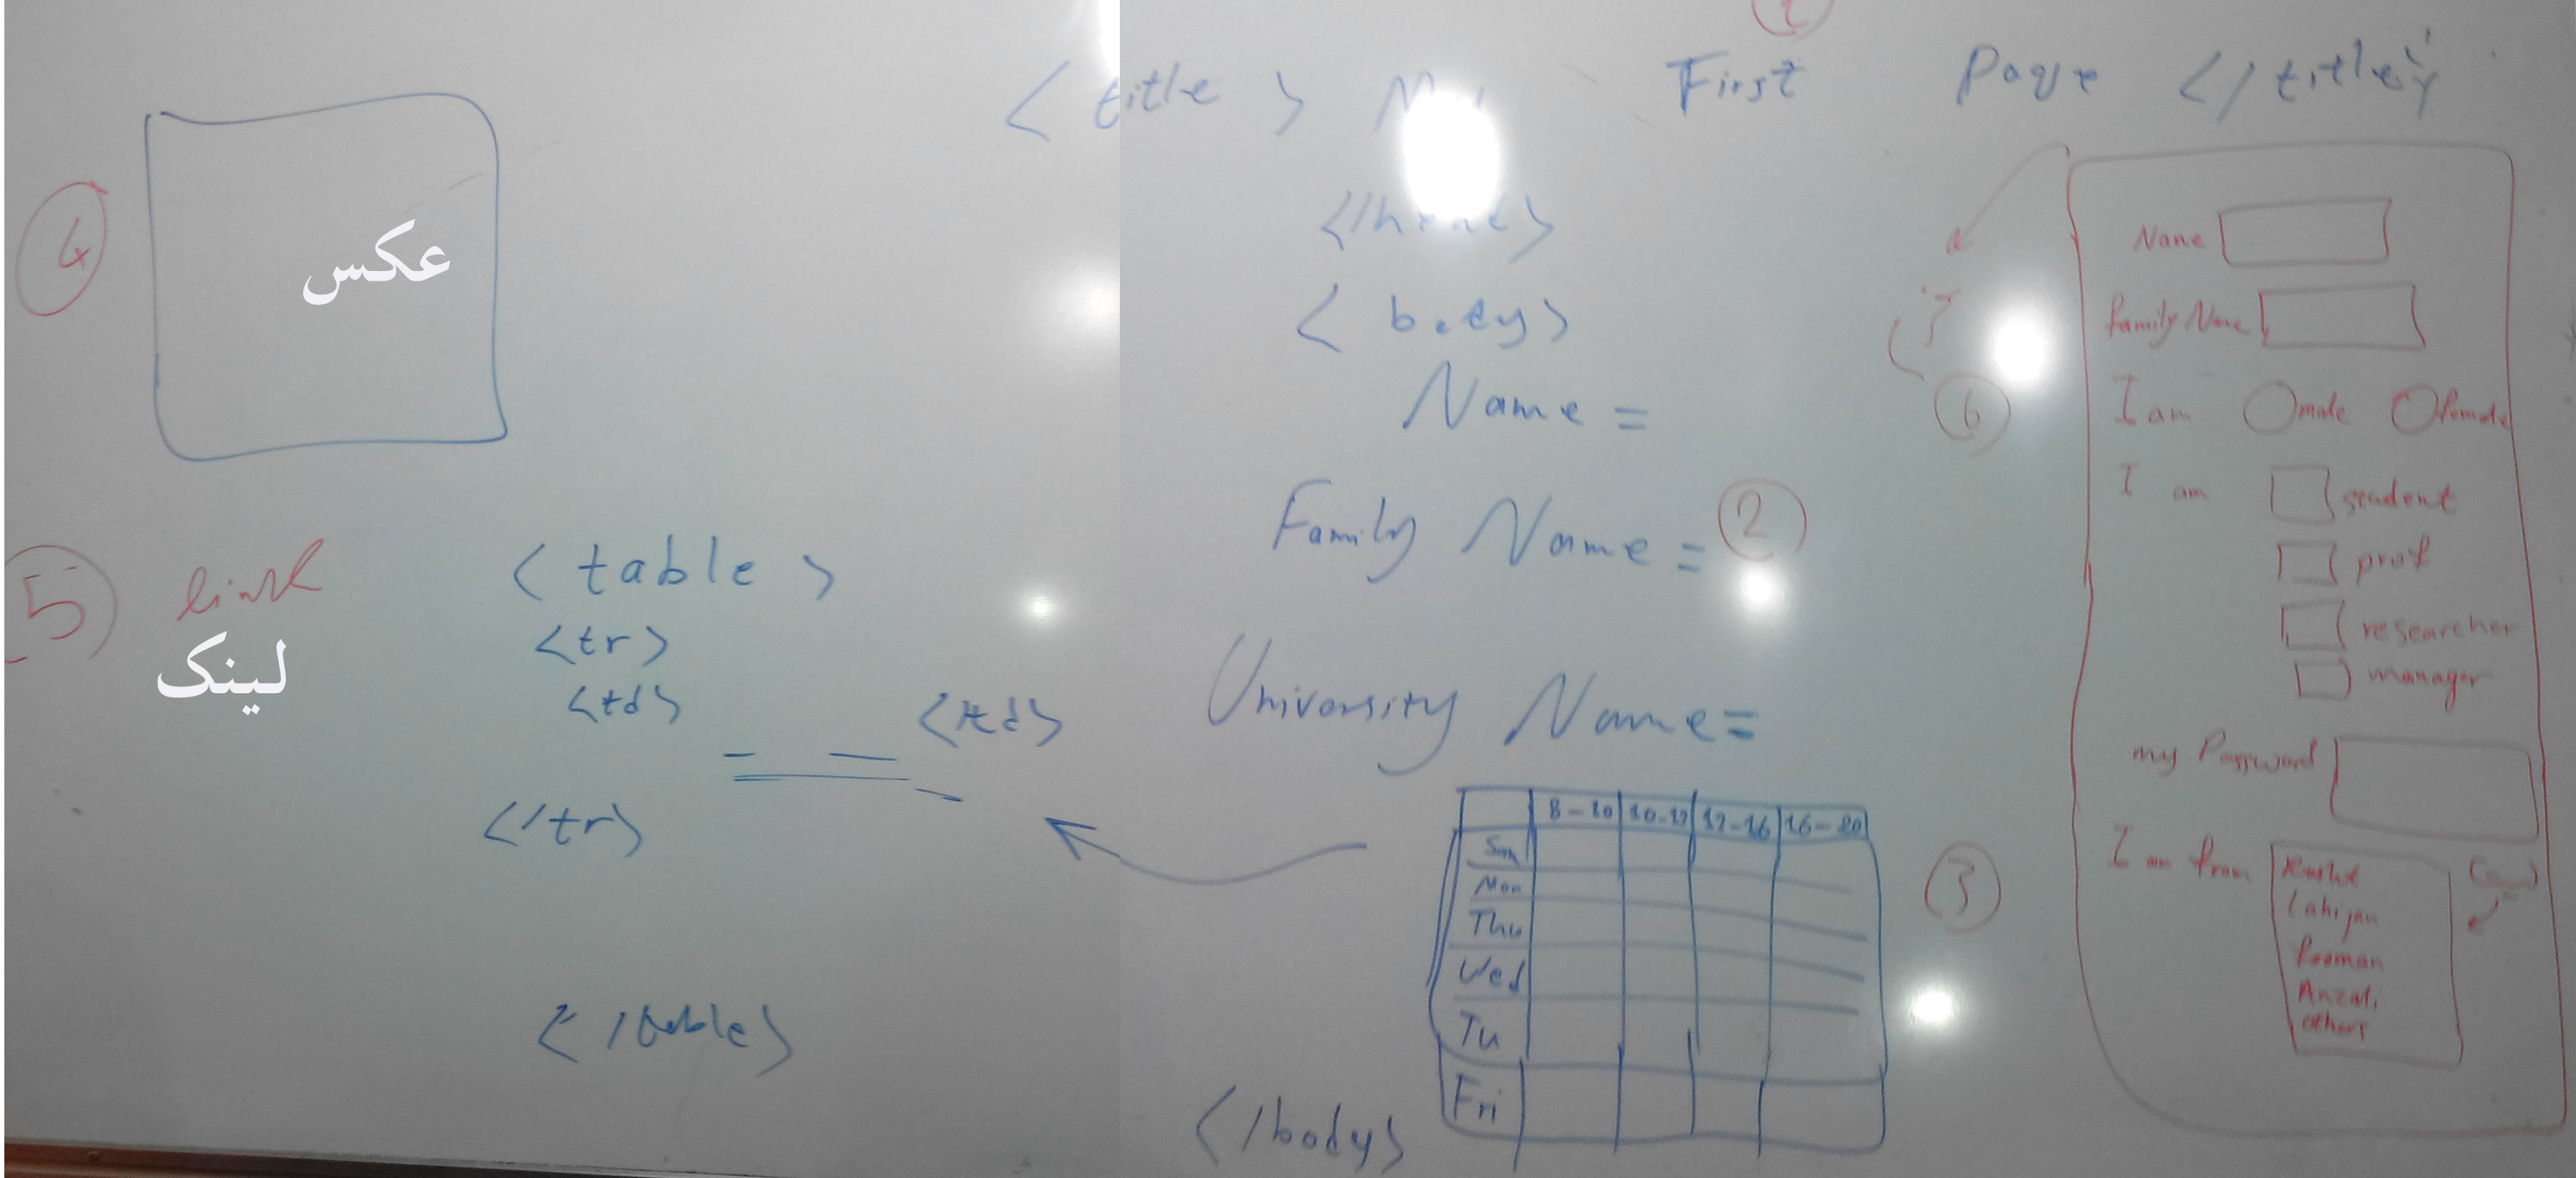 <title> My First Page </title>
</head>
<body>
Name =
Family Name =
2
University Name=
8-10 10-12 12-16 16-20
Sun
Mon
Thu
Wed
Tu
Fri
3
</body>
4
عکس
5 link
لینک
<table>
<tr>
<td> </td>
</tr>
</table>
6
Name
Family Name
I am male female
I am student
prof
researcher
manager
my Password
I am from Rasht
Lahijan
Anzali
others